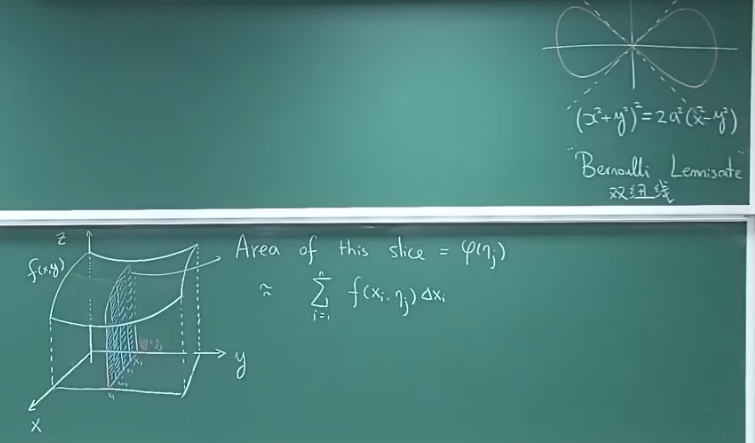 (x²+y²)²=2a²(x²-y²)
"Bernoulli Lemniscate"
双纽线
z
f(x,y)
Area of this slice = φ(ηⱼ)
≈ ∑ⁿᵢ₌₁ f(xᵢ, ηⱼ) Δxᵢ
y
x